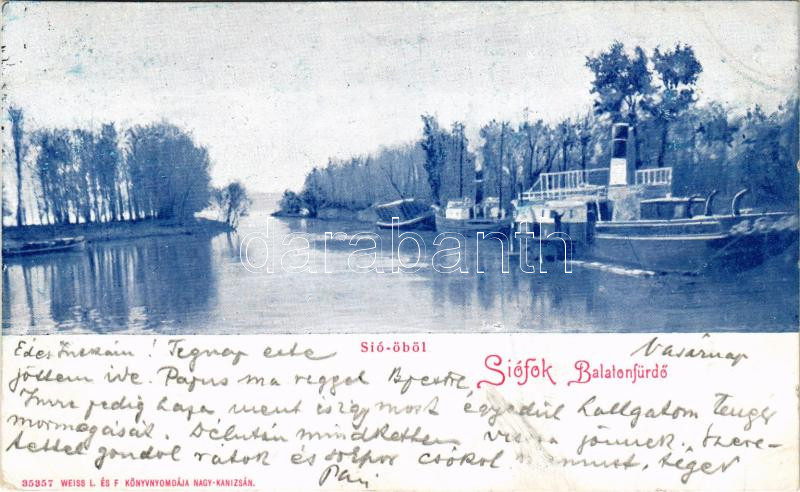 darabanth
Sió-öböl
Siófok Balatonfürdő
Vasárnap
Édes ! Tegnap este
jöttem ide. Papus ma reggel
Imre pedig haza ment és így most egyedül hallgatom Tenger
mormogását. Délután mindketten vissza jönnek. Szere-
tettel gondol rátok és csókol téged
35357 WEISS L. ÉS F KÖNYVNYOMDÁJA NAGY-KANIZSÁN.